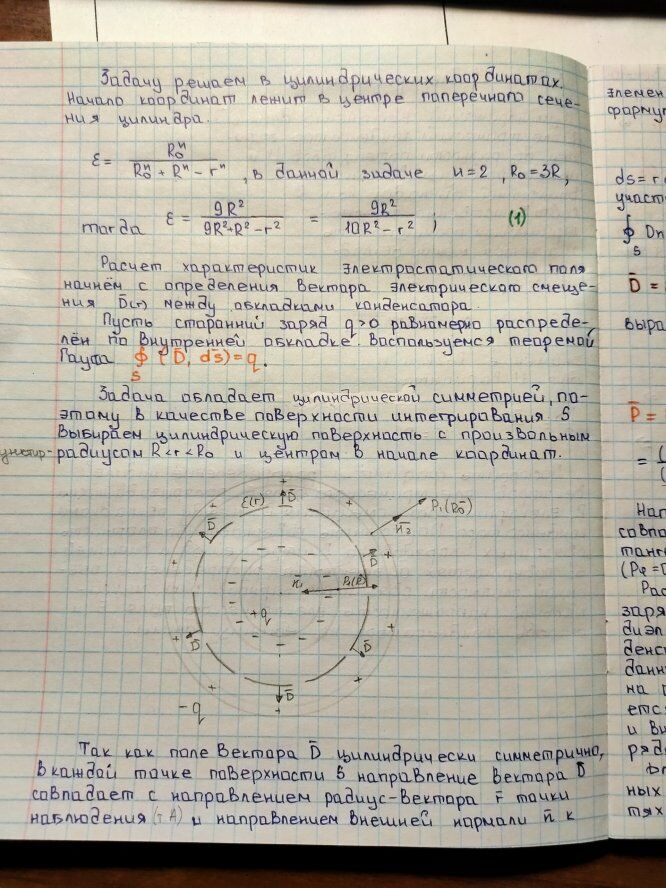 Задачу решаем в цилиндрических координатах.
Начало координат лежит в центре поперечного сече-
ния цилиндра.
ε = R₀ⁿ / (R₀ⁿ + Rⁿ - rⁿ), в данной задаче n=2, R₀=3R,
тогда ε = 9R² / (9R²+R²-r²) = 9R² / (10R²-r²); (1)
Расчет характеристик электростатического поля
начнём с определения вектора электрического смеще-
ния D̄(r) между обкладками конденсатора.
Пусть сторонний заряд q>0 равномерно распреде-
лён по внутренней обкладке. Воспользуемся теоремой
Гаусса ∮ (D̄, ds̄) = q.
S
Задача обладает цилиндрической симметрией, по-
этому в качестве поверхности интегрирования S
выбираем цилиндрическую поверхность с произвольным
радиусом R<r<R₀ и центром в начале координат.
ε(r) D̄
D̄
P₁(R₀)
n̄₂
D̄
n̄₁
+q
D̄
D̄
D̄
-q
Так как поле вектора D̄ цилиндрически симметрично,
в каждой точке поверхности S направление вектора D̄
совпадает с направлением радиус-вектора r̄ точки
наблюдения (т А) и направлением внешней нормали n̄ к
элемен
форму
ds = r
участ
∮ Dn
S
D̄ =
выра
P̄ =
= (
нап
совпа
танг
Рас
заря
диэл
денс
данн
на п
ется
и вн
ряд
ных
тях